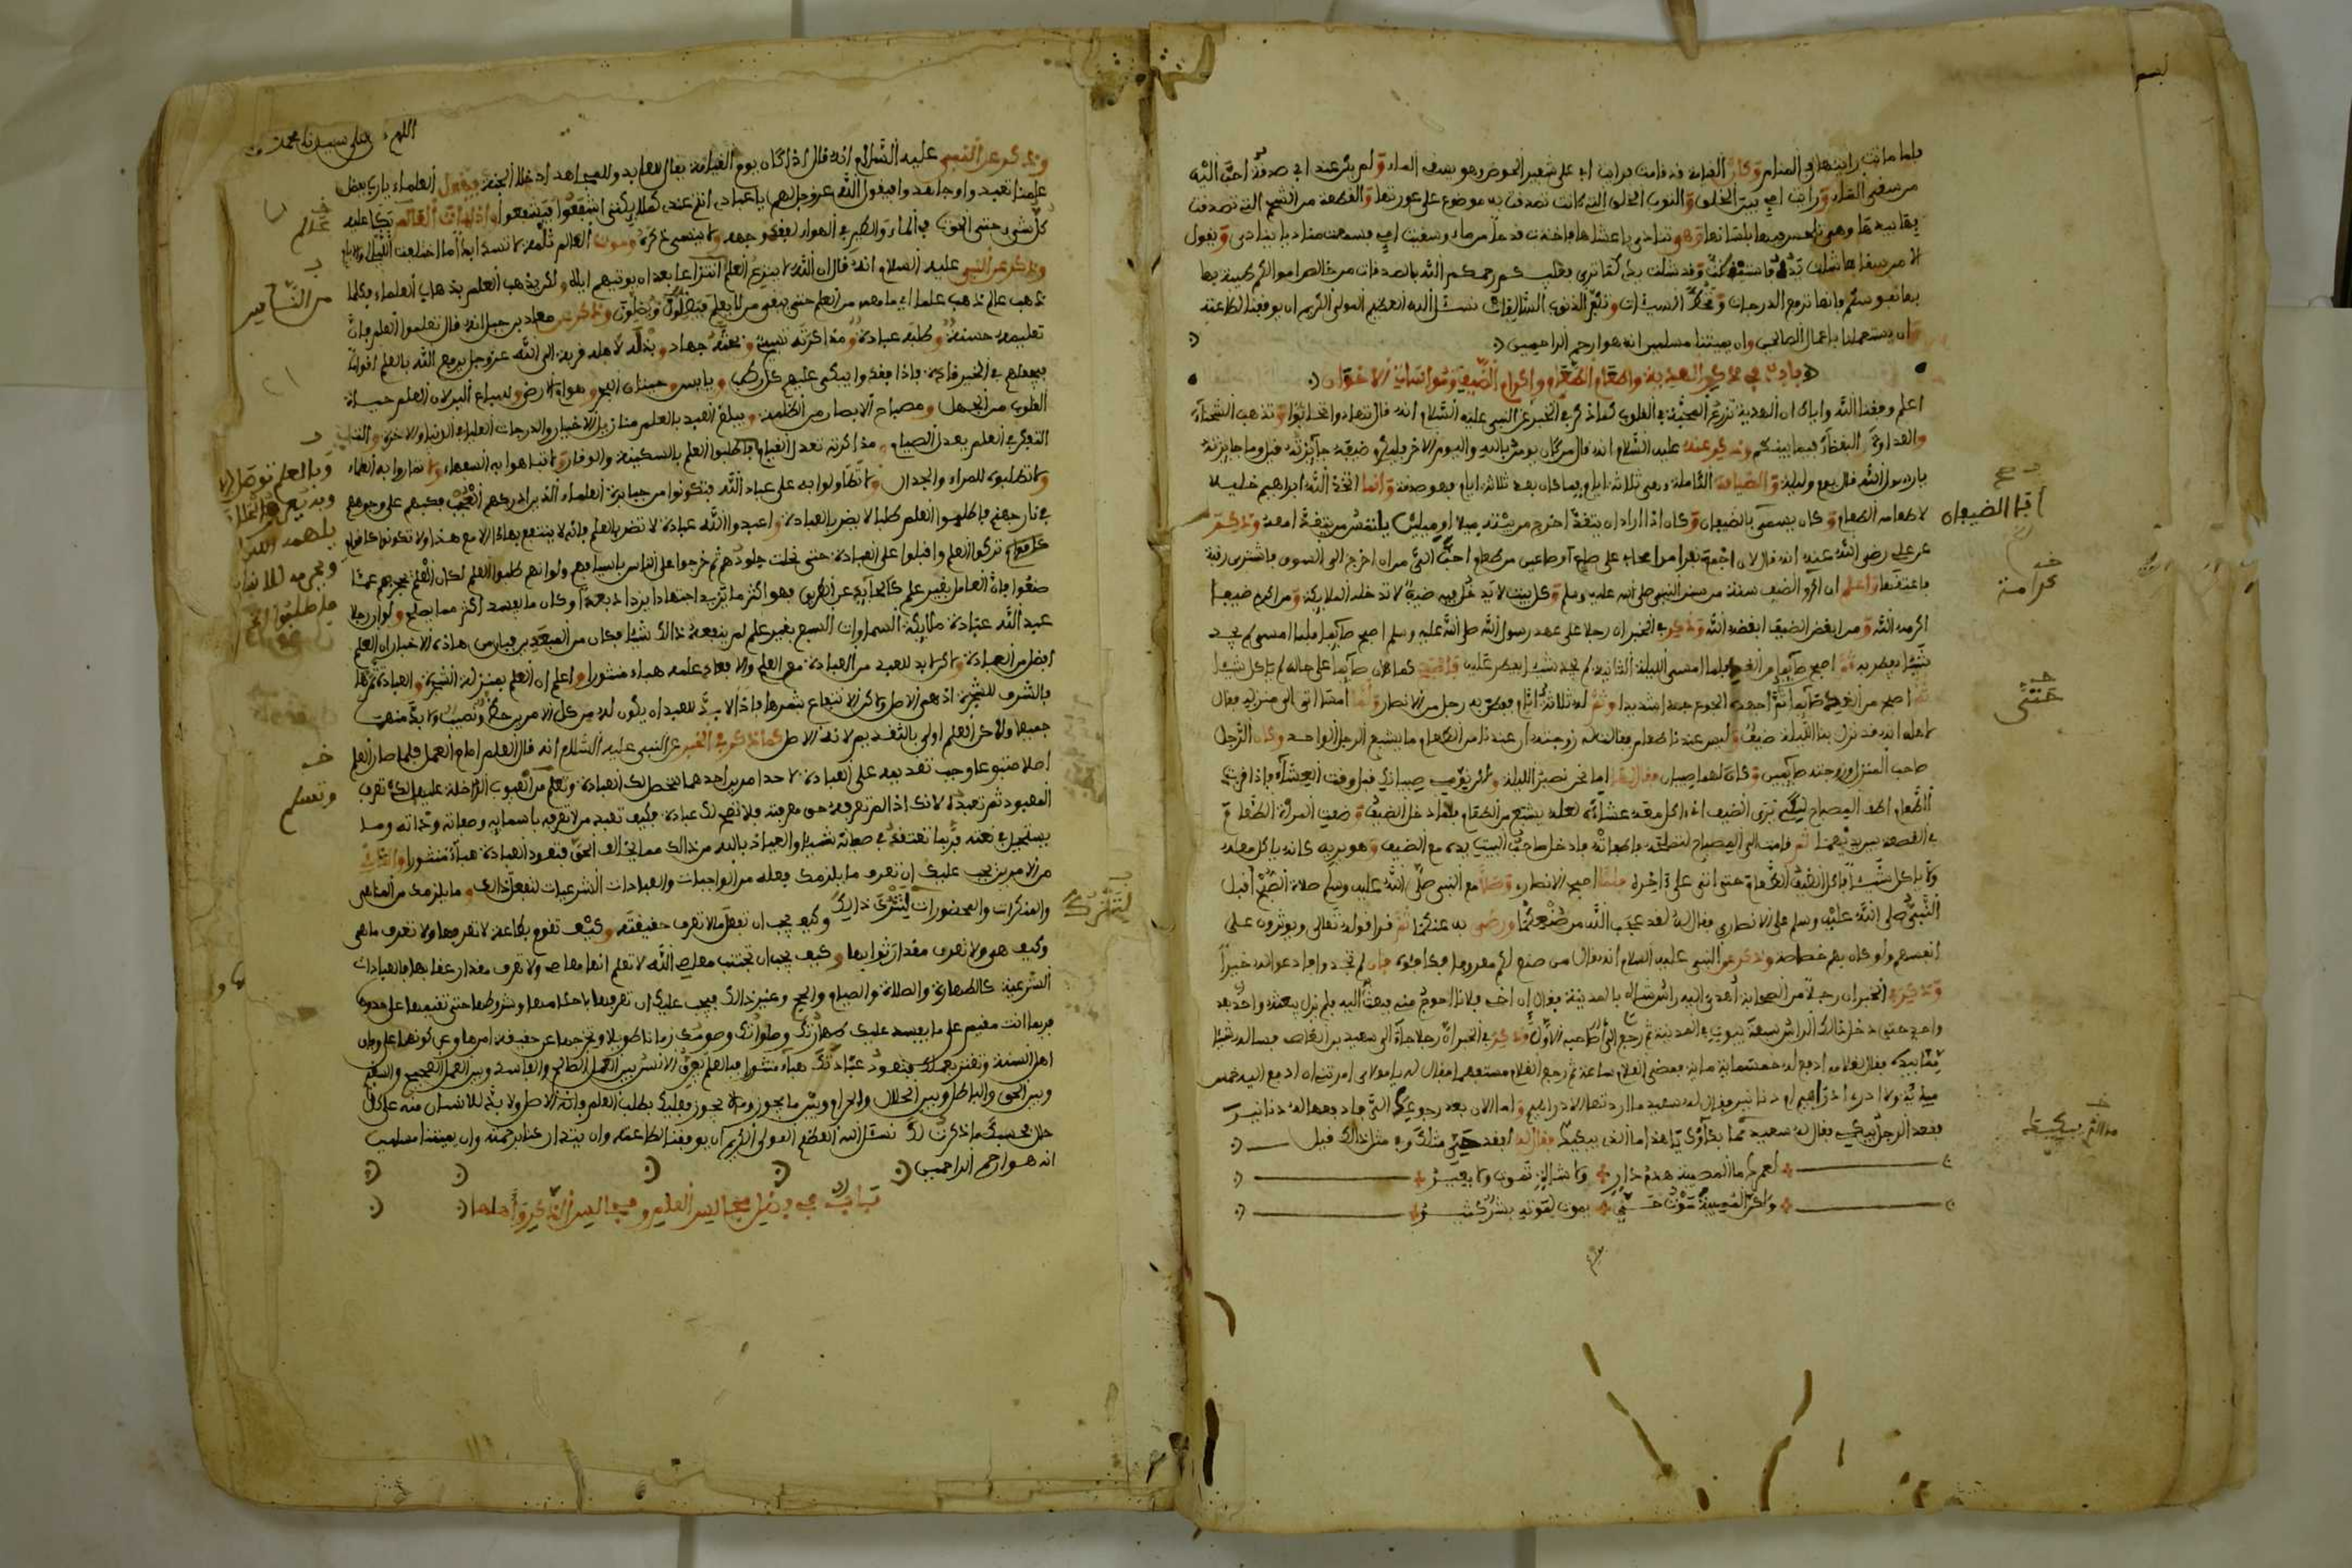 لبسم
فلما ماتت رايتها في المنام وكأن القيامة قد قامت فرايت ابي على شفير الحوض وهو يسقي الماء ولم يكن عند ابي صدقة احب اليه
من سقي الماء ورايت امي بين الخلق والثوب الخلق التي كانت تصدقت به موضوع على عورتها والقطعة من الشحم التي تصدقت
بها بيدها وهي تلحس بلسانها وهو تنادي يا عطشاه فاخذت قدحا من ماء وسقيت امي فسمعت مناديا ينادي ويقول
الا من سقاها شلت يده فاستيقظت وقد شلت يدي كما ترى فعليكم رحمكم الله بالصدقات من خالص اموالكم طيبة بها
نفوسكم فانها ترفع الدرجات وتكفر السيئات وتغفر الذنوب السالفات نسئل الله العظيم المولى الكريم ان يوفقنا لطاعته
وان يستعملنا باعمال الصالحين وان يميتنا مسلمين انه هو ارحم الراحمين
باب في ذكر الهدية واطعام الطعام واكرام الضيف ومواساة الاخوان
اعلم وفقنا الله واياك ان الهدية تزرع المحبة في القلوب كما ذكر في الخبر عن النبي عليه السلام انه قال تهادوا تحابوا وتذهب الشحناء
والعداوة البغضاء فيما بينكم وذكر عنه عليه السلام انه قال من كان يومن بالله واليوم الاخر فليكرم ضيفه جايزته قيل وما جايزته
يا رسول الله قال يوم وليلة والضيافة الكاملة وهي ثلاثة ايام فما كان بعد ثلاثة ايام فهو صدقة وانما اتخذ الله ابراهيم خليلا
لاطعامه الطعام وكان يسمى بالضيفان وكان اذا اراد ان يتغذا اخرج من بيته ميلا او ميلين يلتمس من يتغذا معه وذكر
ابا الضيفان
عن علي رضي الله عنه انه قال لان اجمع نفرا من اصحابي على صاع او صاعين من طعام احب الي من ان اخرج الى السوق فاشتري رقبة
فاعتقها واعلم ان اكرم الضيف سنة من سنن النبي صلى الله عليه وسلم وكل بيت لا يدخل فيه ضيف لا تدخله الملايكة ومن اكرم ضيفا
كرامة
اكرمه الله ومن ابغض الضيف ابغضه الله وذكر في الخبر ان رجلا على عهد رسول الله صلى الله عليه وسلم اصبح صايما فلما امسى لم يجد
شيئا يفطر به ثم اصبح صايما من الغد فلما امسى الليلة الثانية لم يجد شيئا يفطر عليه كما كان صايما على حاله لم ياكل شيئا
ثم اصبح من الغد صايما ثم اجهده الجوع جهدا شديدا له ثلاثة ايام ففطن به رجل من الانصار فلما امسا اتى الى منزله فقال
حتى
لاهله انه قد نزل بنا الليلة ضيف وليس عندنا طعام فقالت له زوجته ان عندنا من الطعام ما يشبع الرجل الواحد وكان الرجل
صاحب المنزل وزوجته صايمين وكان لهما صبيان فقال لها اما نحن نصبر الليلة ولاكن نومي صبيانك قبل وقت العشاء فاذا قربتي
الطعام اطف المصباح لكي ترى الضيف انا ناكل معه عشاءه لعله يشبع من الطعام فلما دخل الضيف وضعت المراة الطعام
في القصعة بين يديهما ثم قامت الى المصباح لتصلحه فاطفاته فادخل صاحب البيت يده مع الضيف وهو يريه كانه ياكل معه
ولا ياكل شيئا فاكل الضيف الطعام حتى اتى على اخره فلما اصبح الانصاري وصلا مع النبي صلى الله عليه وسلم صلاة الصبح اقبل
النبي صلى الله عليه وسلم على الانصاري فقال له لقد عجب الله من صنيعكما ورضي به عنكما ثم قرا قوله تعالى ويوثرون على
انفسهم ولو كان بهم خصاصة وذكر عن النبي عليه السلام انه قال من صنع لكم معروفا فكافئوه فان لم تجدوا فادعوا له خيرا
وذكر في الخبر ان رجلا من الصحابة اهدي اليه راس شاة بالمدينة فقال ان اخي فلانا احوج مني فبعث اليه فلم يزل يبعثه واحد بعد
واحد حتى دخل ذالك الراس سبعة بيوت في المدينة ثم رجع الى صاحبه الاول وذكر في الخبر ان رجلا جاء الى سعيد بن العاص فساله شيئا
فقال لغلامه ادفع له خمسماية فمضى الغلام ساعة ثم رجع الغلام مستفهما فقال له يا مولاي امرتني ان ادفع اليه خمس
ماية ولا ادري ادراهم او دنانير فقال له سعيد ما اردتها الا دراهم واما الان بعد رجوعك الي فادفعها له دنانير
فقعد الرجل يبكي فقال له سعيد يا هذا ما الذي يبكيك فقال له افقد حتى مثلك وفي مثل ذالك قيل
لعمرك ما المصيبة هدم دار ولا شاة تموت ولا بعير
ولاكن المصيبة موت حي يموت لموته بشر كثير
اللهم صل على سيدنا محمد
وذكر عن النبي عليه السلام انه قال اذا كان يوم القيامة يقال للعابد وللمجاهد ادخلا الجنة فيقول العلماء يا رب بفضل
علمنا تعبدوا وجاهدوا فيقول الله عز وجل لهم يا عبادي انتم عندي كملايكتي اشفعوا فيشفعوا واذا مات العالم بكا عليه
كل شيء حتى الحوت في الماء والطير في الهواء ليفقد وجهه ولا ينسى ذكره وموت العالم ثلمة لا تنسد ابدا ما اختلف الليل والنهار
عالم
وذكر عن النبي عليه السلام انه قال ان الله لا ينزع العلم انتزاعا بعد ان يوتيهم اياه ولاكن يذهب العلم بذهاب العلماء فكلما
من الناس
ذهب عالم ذهب علما بما معه من العلم حتى يبقى من لا يعلم فيضلون ويضلون وذكر عن معاذ بن جبل انه قال تعلموا العلم فان
تعليمه حسنة وطلبه عبادة ومذاكرته تسبيح وبحثه جهاد وبذله لاهله قربة الى الله عز وجل يرفع الله بالعلم اقواما
فيجعلهم في الخير قادة فاذا فقدوا يبكي عليهم كل رطب ويابس وحيتان البحر وهوام الارض وسباع البر لان العلم حياة
القلوب من الجهل ومصباح الابصار من الظلمة ويبلغ العبد بالعلم منازيل الاخيار والدرجات العليا في الدنيا والاخرة
التفكر في العلم يعدل الصيام ومذاكرته تعدل القيام فاطلبوا العلم بالسكينة والوقار ولا تباهوا به السفهاء ولا تماروا به العلماء
ولا تطلبوه للمراء والجدال ولا تطاولوا به على عباد الله فتكونوا من جبابرة العلماء الذين ادركهم الغضب فكبهم على وجوههم
في نار جهنم فاطلبوا العلم طلبا لا يضر بالعبادة واعبدوا الله عبادة لا تضر بالعلم فانه لا ينتفع بهاذا الا مع هذا ولا تكونوا كاقوام
تركوا العلم واقبلوا على العبادة حتى نحلت جلودهم ثم خرجوا على الناس باسيافهم ولو انهم طلبوا العلم لكان العلم يحجزهم عما
صنعوا فان العامل بغير علم كالجايد عن الطريق فهو اكثر ما يزيد اجتهادا يزداد بعدا وكان ما يفسد اكثر مما يصلح ولو ان رجلا
عبد الله عبادة ملايكة السماوات السبع بغير علم لم ينفعه ذالك شيئا فكان من المبعدين فبان من هاذه الاخبار ان العلم
افضل من العبادة ولاكن لا بد للعبد من العبادة مع العلم والا فعاد علمه هباء منثورا واعلم ان العلم بمنزلة الشجرة والعبادة ثمرها
فالشرف للشجرة اذ هي الاصل ولاكن الانتفاع بثمرها فاذا لا بد للعبد ان يكون له من كل الامرين حظ ونصيب ولا بد منهما
جميعا ولاكن العلم اولى بالتقديم لانه الاصل كما ذكر في الخبر عن النبي عليه السلام انه قال العلم امام العمل فلما صار العلم
اصلا متبوعا وجب تقديمه على العبادة لاحد امرين احدهما لتحصل لك العبادة وتسلم من العيوب الداخلة عليها لانك تعرف
وتسلم
المعبود ثم تعبده لانك اذا لم تعرفه حق معرفته فلا تصح لك عبادة فكيف تعبد من لا تعرفه باسمايه وصفاته وذاته وما
يستحيل في نعته فربما تعتقد في صفاته شيئا والعياذ بالله من ذالك مما يخالف الحق فتعود العبادة هباء منثورا والثاني
من الامرين يجب عليك ان تعرف ما يلزمك فعله من الواجبات والعبادات الشرعيات لتفعل ذالك وما يلزمك من المناهي
والمنكرات والمحضورات لتترك ذالك وكيف يجب ان تفعل ما لا تعرف حقيقته وكيف تقوم بطاعة لا تعرفها ولا تعرف ما هي
لتترك
وكيف هي ولا تعرف مقدار ثوابها وكيف يجب ان تجتنب معاصي الله لا تعلم انها معاصي ولا تعرف مقدار عقابها فالعبادات
الشرعية كالطهارة والصلاة والصيام والحج وغير ذالك فيجب عليك ان تعرفها باحكامها وشروطها حتى تقيمها على حدودها
فربما انت مقيم على ما يفسد عليك طهارتك وصلواتك وصومك زمانا طويلا وتخرجها عن حقيقة امرها وعن كونها على وفق
اهل السنة وتغتر بعملك فتعود عبادتك هباء منثورا فبالعلم يعرف الانسان بين العمل الصالح والفاسد وبين العمل الصحيح والسقيم
وبين الحق والباطل وبين الحلال والحرام وبين ما يجوز وما لا يجوز فعليك بطلب العلم فانه الاصل ولا بد للانسان منه على كل
حال فحسبك ما ذكرت لك نسئل الله العظيم المولى الكريم ان يوفقنا لطاعته وان يتداركنا برحمته وان يميتنا مسلمين
انه هو ارحم الراحمين
باب في فضل مجالس العلم ومجالس الذكر واهلها